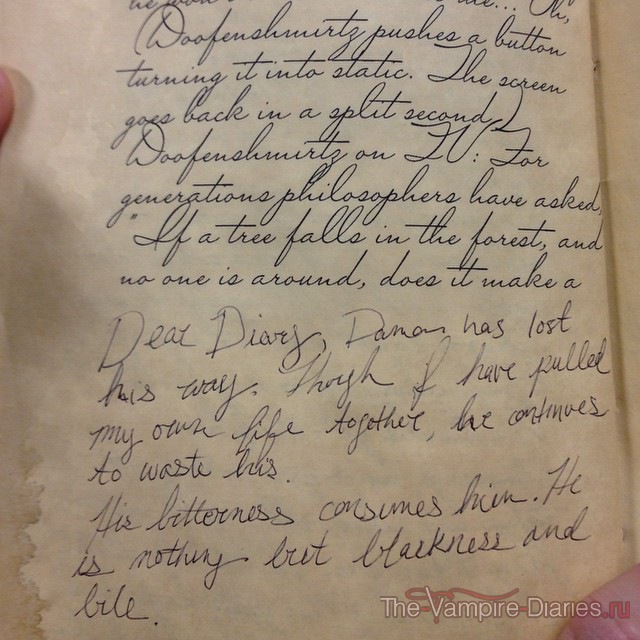 me... Oh,
(Doofenshmirtz pushes a button
turning it into static. The screen
goes back in a split second)
Doofenshmirtz on TV: For
generations philosophers have asked,
"If a tree falls in the forest, and
no one is around, does it make a
Dear Diary, Damon has lost
his way. Though I have pulled
my own life together, he continues
to waste his.
His bitterness consumes him. He
is nothing but blackness and
bile.
The-Vampire-Diaries.ru